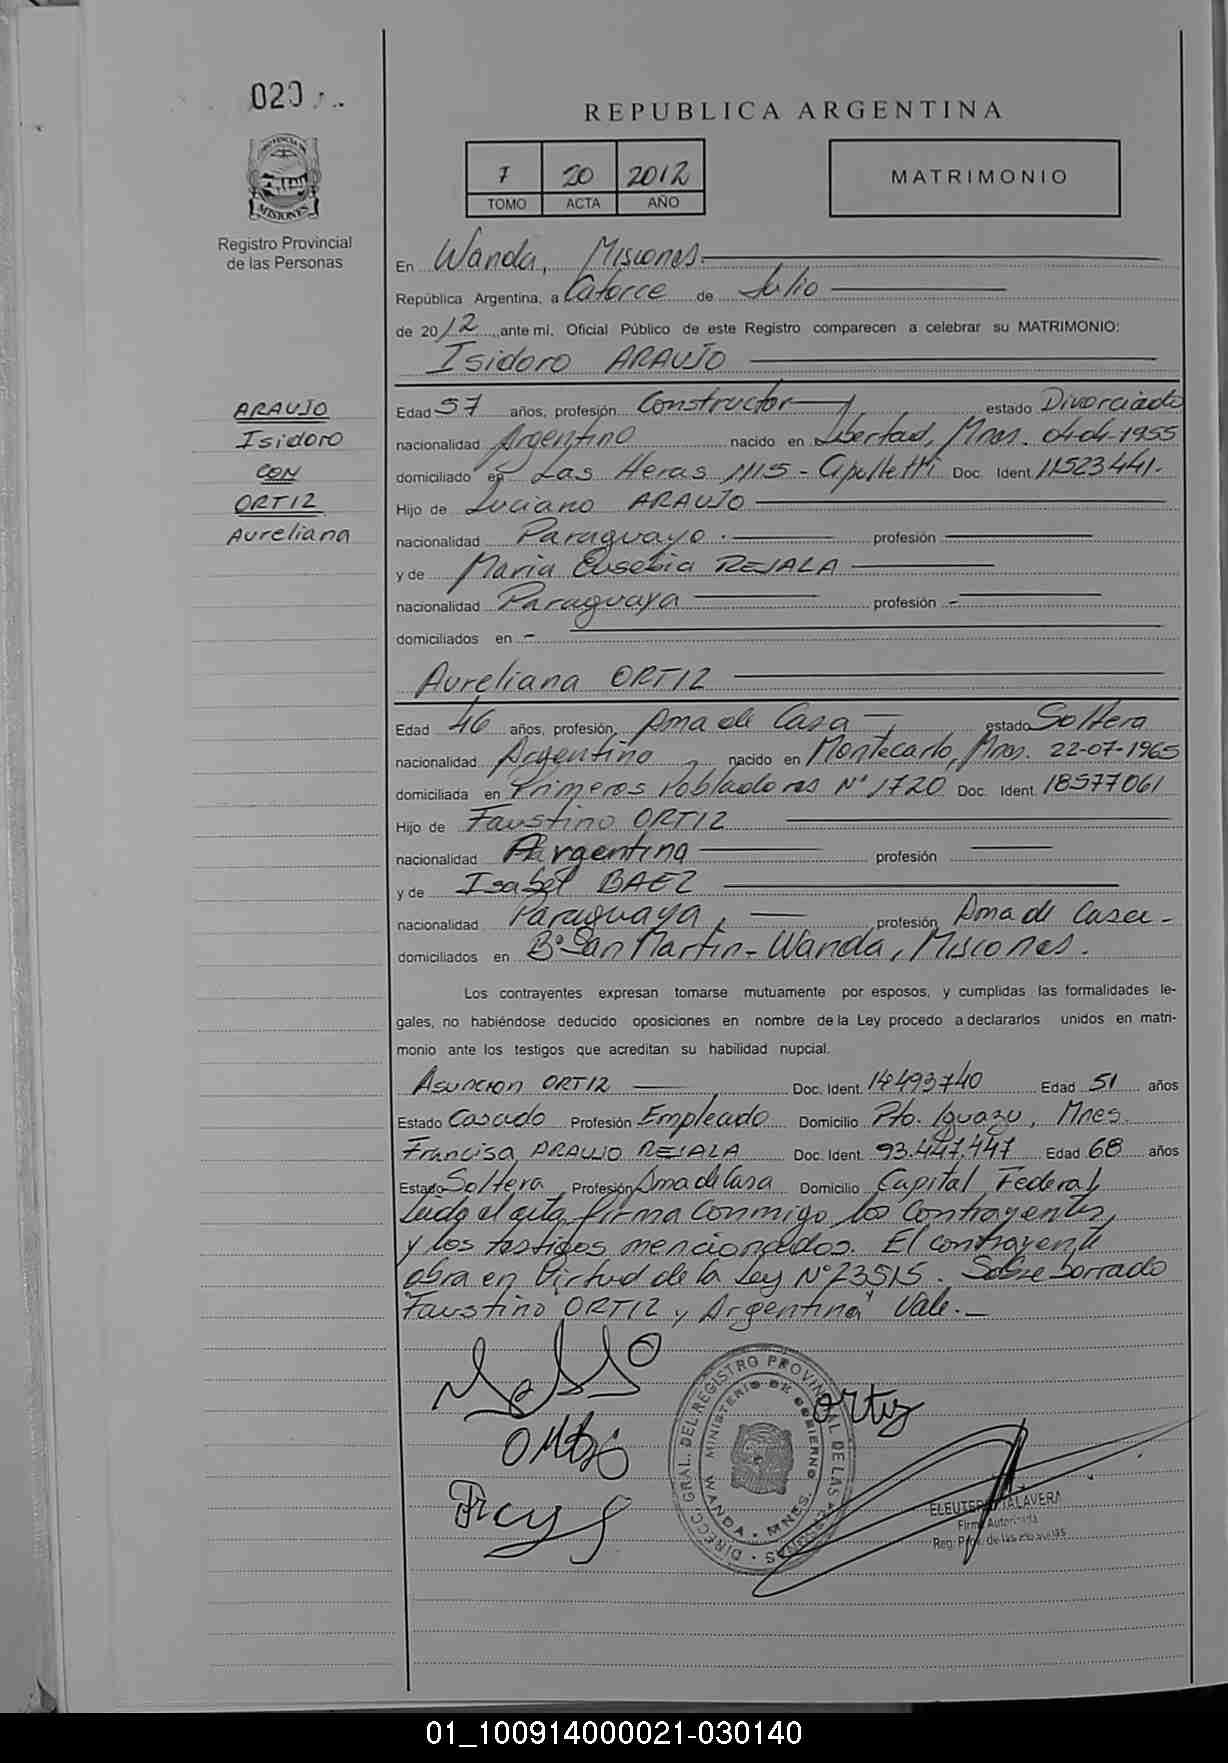 020
REPUBLICA ARGENTINA
7 20 2012
TOMO ACTA AÑO
MATRIMONIO
PROVINCIA DE
MISIONES
Registro Provincial
de las Personas
En Wanda, Misiones.
República Argentina, a Catorce de Julio
de 2012 ante mí, Oficial Público de este Registro comparecen a celebrar su MATRIMONIO:
Isidoro ARAUJO
ARAUJO
Isidoro
CON
ORTIZ
Aureliana
Edad 57 años, profesión Constructor estado Divorciado
nacionalidad Argentino nacido en Libertad, Mnes. 04-04-1955
domiciliado en Las Heras 1115 - Cipolletti Doc. Ident. 11523441.
Hijo de Luciano ARAUJO
nacionalidad Paraguayo. profesión
y de Maria Eusebia REJALA
nacionalidad Paraguaya profesión -
domiciliados en -
Aureliana ORTIZ
Edad 46 años, profesión Ama de Casa estado Soltera
nacionalidad Argentino nacido en Montecarlo, Mnes. 22-07-1965
domiciliada en Primeros Pobladores N° 1720 Doc. Ident. 18577061
Hijo de Faustino ORTIZ
nacionalidad Argentina profesión
y de Isabel BAEZ
nacionalidad Paraguaya, profesión Ama de Casa -
domiciliados en B° San Martin - Wanda, Misiones.
Los contrayentes expresan tomarse mutuamente por esposos, y cumplidas las formalidades le-
gales, no habiéndose deducido oposiciones en nombre de la Ley procedo a declararlos unidos en matri-
monio ante los testigos que acreditan su habilidad nupcial.
Asuncion ORTIZ Doc. Ident. 14493740 Edad 51 años
Estado Casado Profesión Empleado Domicilio Pto. Iguazu, Mnes.
Francisa ARAUJO REJALA Doc. Ident. 93.447.447 Edad 68 años
Estado Soltera Profesión Ama de Casa Domicilio Capital Federal,
Leida el acta, firma conmigo los Contrayentes,
y los testigos mencionados. El contrayente
obra en Virtud de la Ley N° 23515. Sobre borrado
"Faustino ORTIZ y Argentina" Vale.-
ortiz
DIRECC. GRAL. DEL REGISTRO PROVINCIAL DE LAS PERSONAS
MINISTERIO DE GOBIERNO
WANDA - MNES.
ELEUTERIO TALAVERA
Firma Autorizada
Reg. Prov. de las Personas
01_100914000021-030140